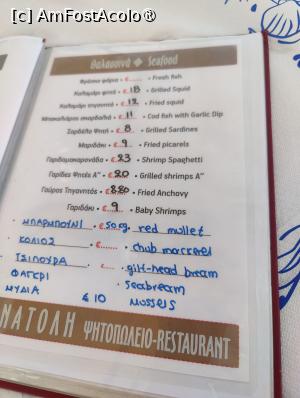 [c] AmFostAcolo®
Θαλασσινά ◆ Seafood
Φρέσκα ψάρια • €...... • Fresh fish
Καλαμάρι ψητό • € 18 • Grilled Squid
Καλαμάρι τηγανητό • € 12 • Fried squid
Μπακαλιάρος σκορδαλιά • € 11 • Cod fish with Garlic Dip
Σαρδέλα Ψητή • € 8 • Grilled Sardines
Μαριδάκι • € 9 • Fried picarels
Γαριδομακαρονάδα • € 23 • Shrimp Spaghetti
Γαρίδες Ψητές Α'' • € 20 • Grilled shrimps A''
Γαύρος Τηγανητός • 8.80 • Fried Anchovy
Γαριδάκι • € 9 • Baby Shrimps
• ΜΠΑΡΜΠΟΥΝΙ • €50kg. red mullet
ΚΟΛΙΟΣ • €...... • chub mackerel
• ΤΣΙΠΟΥΡΑ • €.... • gilt-head bream
ΦΑΓΚΡΙ • Seabream
ΜΥΔΙΑ € 10 Mussels
ΝΑΤΟΛΗ ΨΗΤΟΠΩΛΕΙΟ-RESTAURANT